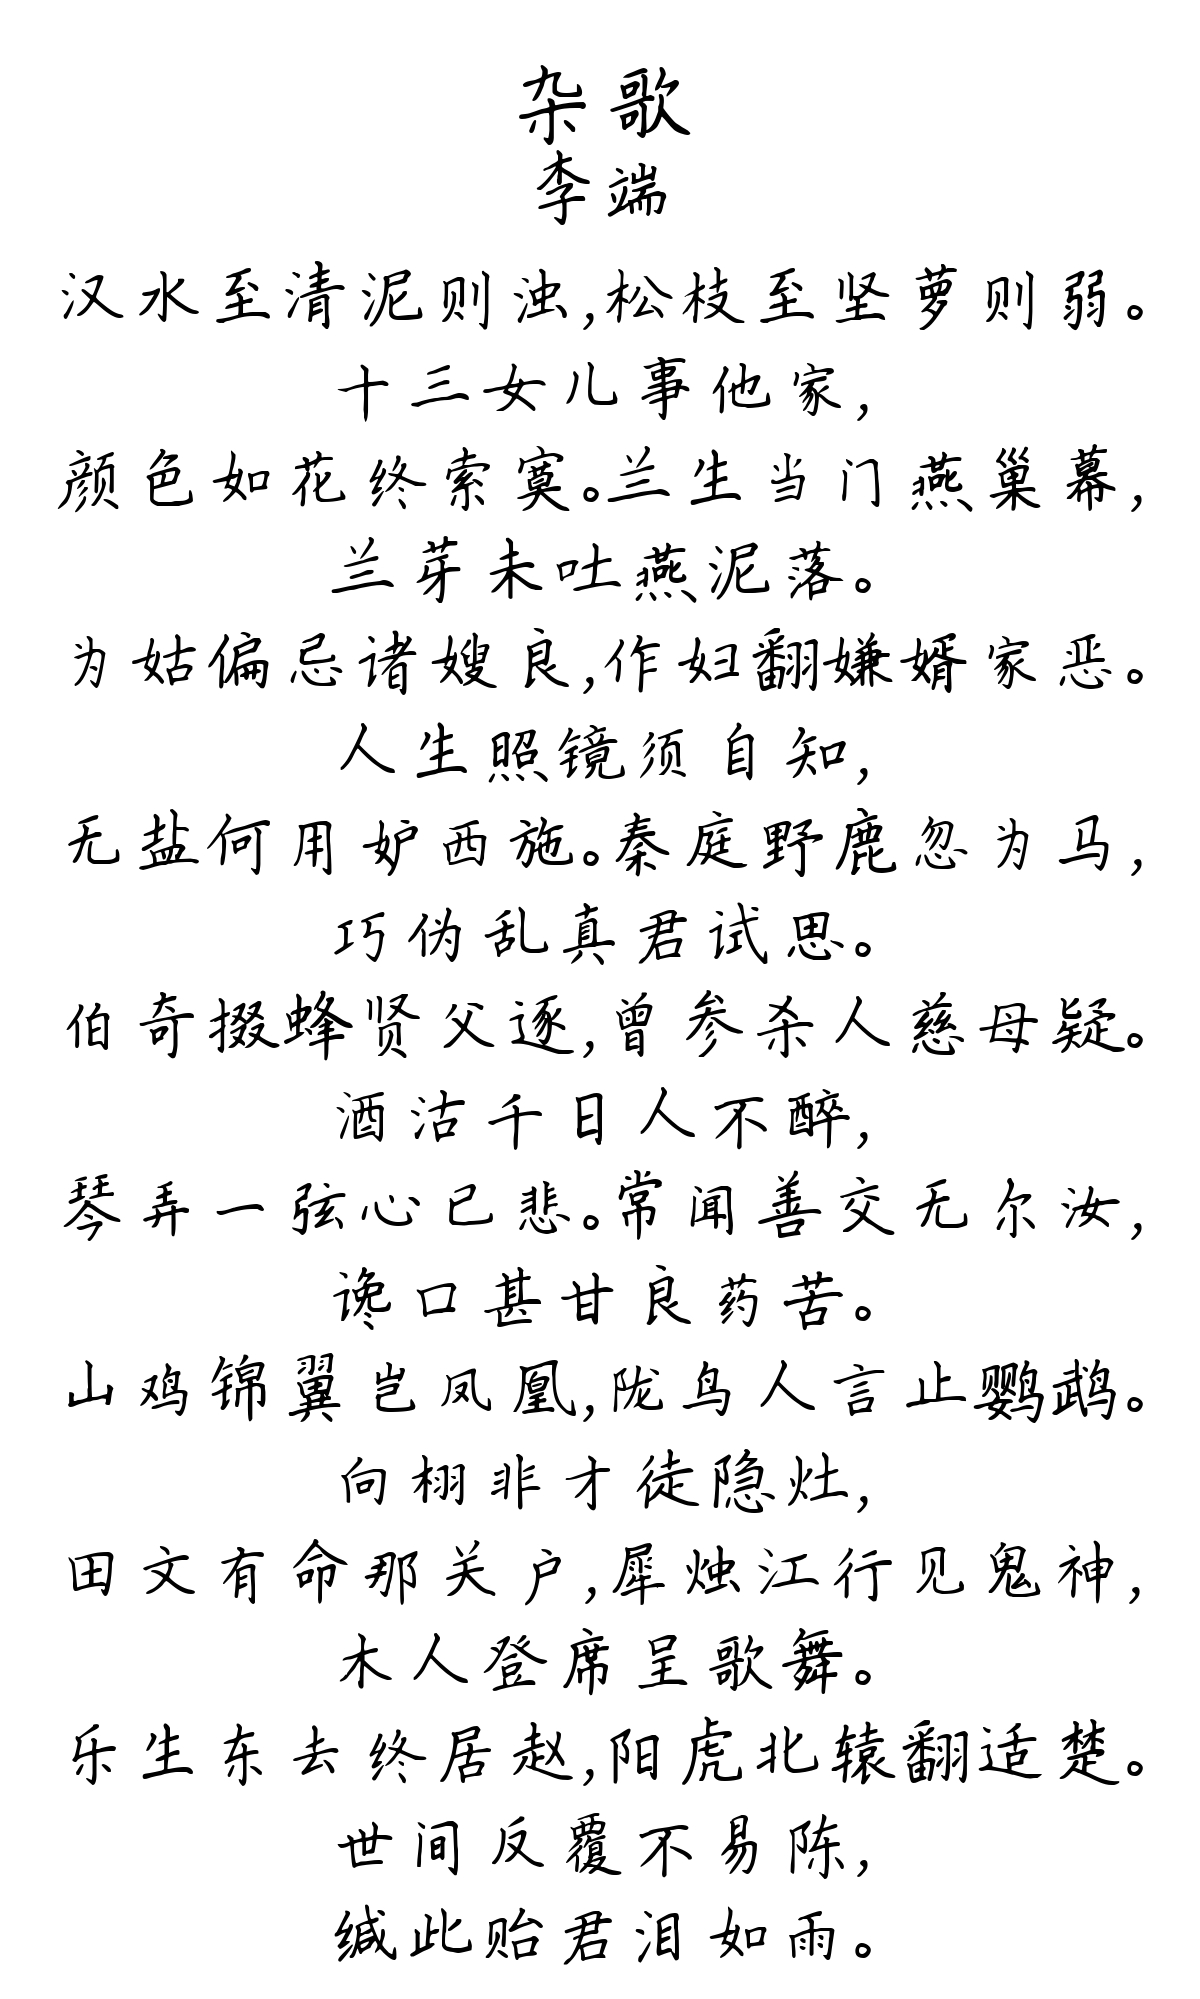 杂歌
李端
汉水至清泥则浊,松枝至坚萝则弱。
十三女儿事他家,
颜色如花终索寞。兰生当门燕巢幕,
兰芽未吐燕泥落。
为姑偏忌诸嫂良,作妇翻嫌婿家恶。
人生照镜须自知,
无盐何用妒西施。秦庭野鹿忽为马,
巧伪乱真君试思。
伯奇掇蜂贤父逐,曾参杀人慈母疑。
酒沽千日人不醉,
琴弄一弦心已悲。常闻善交无尔汝,
谗口甚甘良药苦。
山鸡锦翼岂凤凰,陇鸟人言止鹦鹉。
向栩非才徒隐灶,
田文有命那关户,犀烛江行见鬼神,
木人登席呈歌舞。
乐生东去终居赵,阳虎北辕翻适楚。
世间反覆不易陈,
缄此贻君泪如雨。